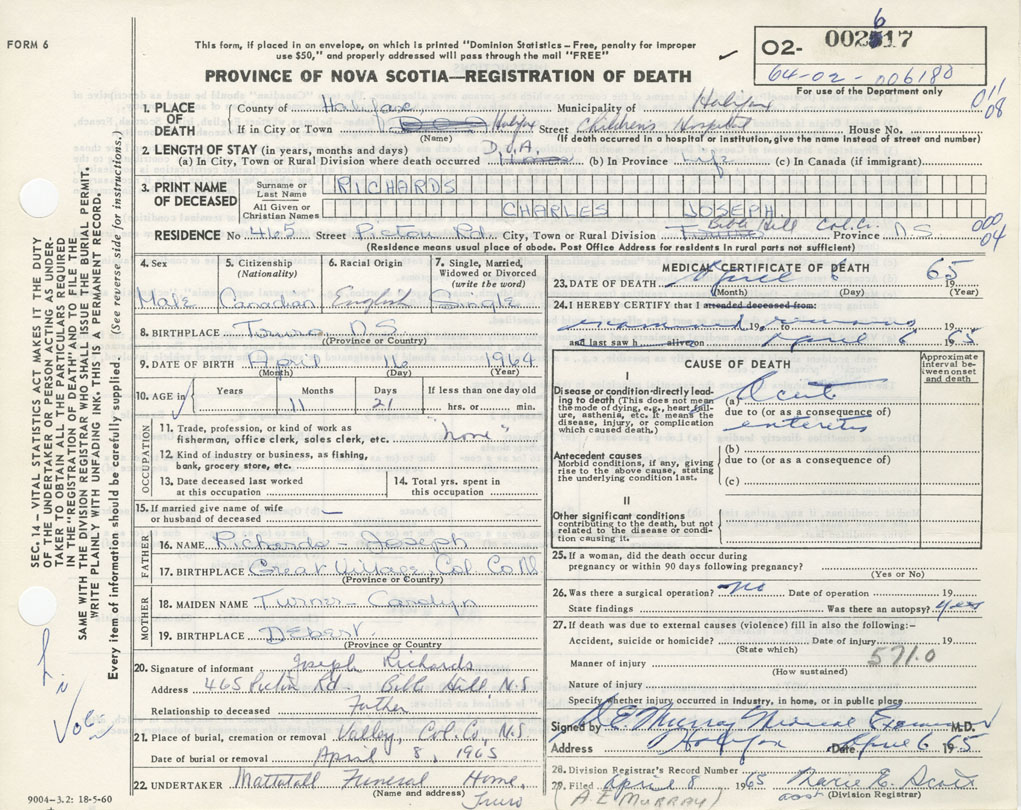 FORM 6
This form, if placed in an envelope, on which is printed "Dominion Statistics – Free, penalty for improper
use $50," and properly addressed will pass through the mail "FREE"
PROVINCE OF NOVA SCOTIA—REGISTRATION OF DEATH
6
02- 002517
64-02-006180
For use of the Department only
01/08
1. PLACE OF DEATH
County of Halifax Municipality of Halifax
If in City or Town Halifax Street Children's Hospital House No.
(Name) (If death occurred in a hospital or institution, give the name instead of street and number)
2. LENGTH OF STAY (in years, months and days) D.O.A.
(a) In City, Town or Rural Division where death occurred (b) In Province Life (c) In Canada (if immigrant)
3. PRINT NAME OF DECEASED
Surname or Last Name RICHARDS
All Given or Christian Names CHARLES JOSEPH
Bible Hill Col. Co.
RESIDENCE No 465 Street Pictou Rd. City, Town or Rural Division Truro Province N S
000/04
(Residence means usual place of abode. Post Office Address for residents in rural parts not sufficient)
4. Sex Male
5. Citizenship (Nationality) Canadian
6. Racial Origin English
7. Single, Married, Widowed or Divorced (write the word) Single
8. BIRTHPLACE Truro, N S
(Province or Country)
9. DATE OF BIRTH April 16 1964
(Month) (Day) (Year)
10. AGE in Years Months 11 Days 21 If less than one day old hrs. or min.
OCCUPATION
11. Trade, profession, or kind of work as fisherman, office clerk, sales clerk, etc. "none"
12. Kind of industry or business, as fishing, bank, grocery store, etc.
13. Date deceased last worked at this occupation
14. Total yrs. spent in this occupation
15. If married give name of wife or husband of deceased —
FATHER
16. NAME Richards – Joseph
17. BIRTHPLACE Great Village, Col Co NS
(Province or Country)
MOTHER
18. MAIDEN NAME Turner – Carolyn
19. BIRTHPLACE Debert.
(Province or Country
20. Signature of informant Joseph Richards
Address 465 Pictou Rd – Bible Hill N.S
Relationship to deceased Father
21. Place of burial, cremation or removal Valley, Col. Co., N.S.
Date of burial or removal April 8, 1965
22. UNDERTAKER Mattatall Funeral Home, Truro
(Name and address)
9004-3.2: 18-5-60
MEDICAL CERTIFICATE OF DEATH
23. DATE OF DEATH April 6 1965
(Month) (Day) (Year)
24. I HEREBY CERTIFY that I attended deceased from:
examined 19 to remains 19
and last saw h alive on April 6 1965
CAUSE OF DEATH
Approximate interval between onset and death
I
Disease or condition directly leading to death (This does not mean the mode of dying, e.g., heart failure, asthenia, etc. It means the disease, injury, or complication which caused death.)
(a) Acute
due to (or as a consequence of)
enteritis
Antecedent causes
Morbid conditions, if any, giving rise to the above cause, stating the underlying condition last.
(b)
due to (or as a consequence of)
(c)
II
Other significant conditions
contributing to the death, but not related to the disease or condition causing it.
25. If a woman, did the death occur during pregnancy or within 90 days following pregnancy?
(Yes or No)
26. Was there a surgical operation? no Date of operation 19
State findings Was there an autopsy? yes
27. If death was due to external causes (violence) fill in also the following:–
Accident, suicide or homicide? Date of injury 19
(State which)
571.0
Manner of injury
(How sustained)
Nature of injury
Specify whether injury occurred in Industry, in home, or in public place
Signed by A E. Murray Medical Examiner M.D.
Address Halifax Date April 6 1965
28. Division Registrar's Record Number
29. Filed April 8 1965 Marie E.
asst (Division Registrar)
(A. E MURRAY)
SEC. 14 – VITAL STATISTICS ACT MAKES IT THE DUTY
OF THE UNDERTAKER OR PERSON ACTING AS UNDER-
TAKER TO OBTAIN ALL THE PARTICULARS REQUIRED
IN THE "REGISTRATION OF DEATH" AND TO FILE THE
SAME WITH THE DIVISION REGISTRAR WHO SHALL ISSUE THE BURIAL PERMIT.
WRITE PLAINLY WITH UNFADING INK. THIS IS A PERMANENT RECORD.
Every item of information should be carefully supplied. (See reverse side for instructions.)